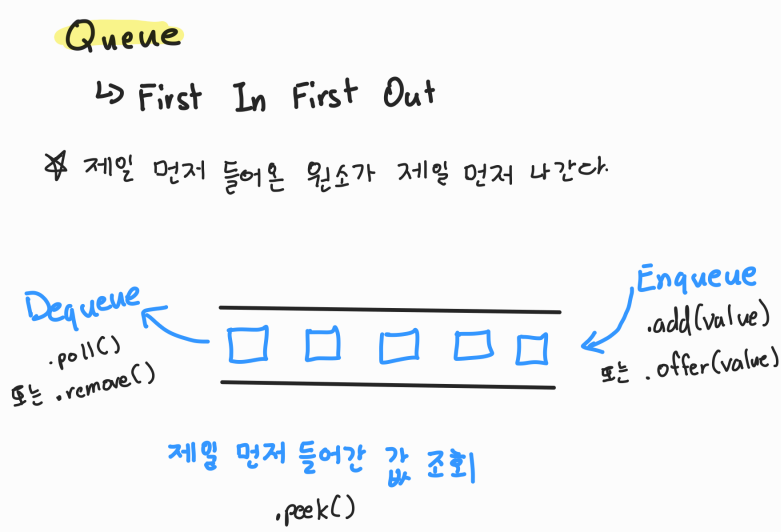 Queue
↳ First In First Out
☆ 제일 먼저 들어온 원소가 제일 먼저 나간다.
Dequeue
.poll()
또는 .remove()
Enqueue
.add(value)
또는 .offer(value)
제일 먼저 들어간 값 조회
.peek()